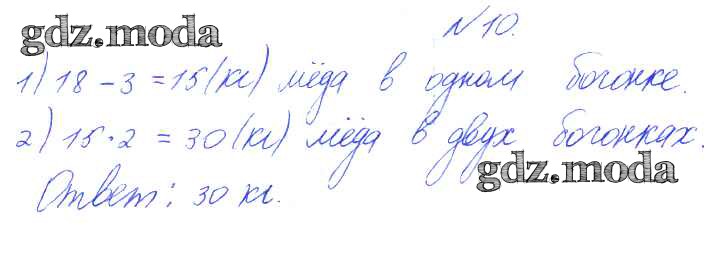 №10.
gdz.moda
1) 18 - 3 = 15 (кг) мёда в одном богонке.
2) 15 · 2 = 30 (кг) мёда в двух богонках.
gdz.moda
Ответ: 30 кг.